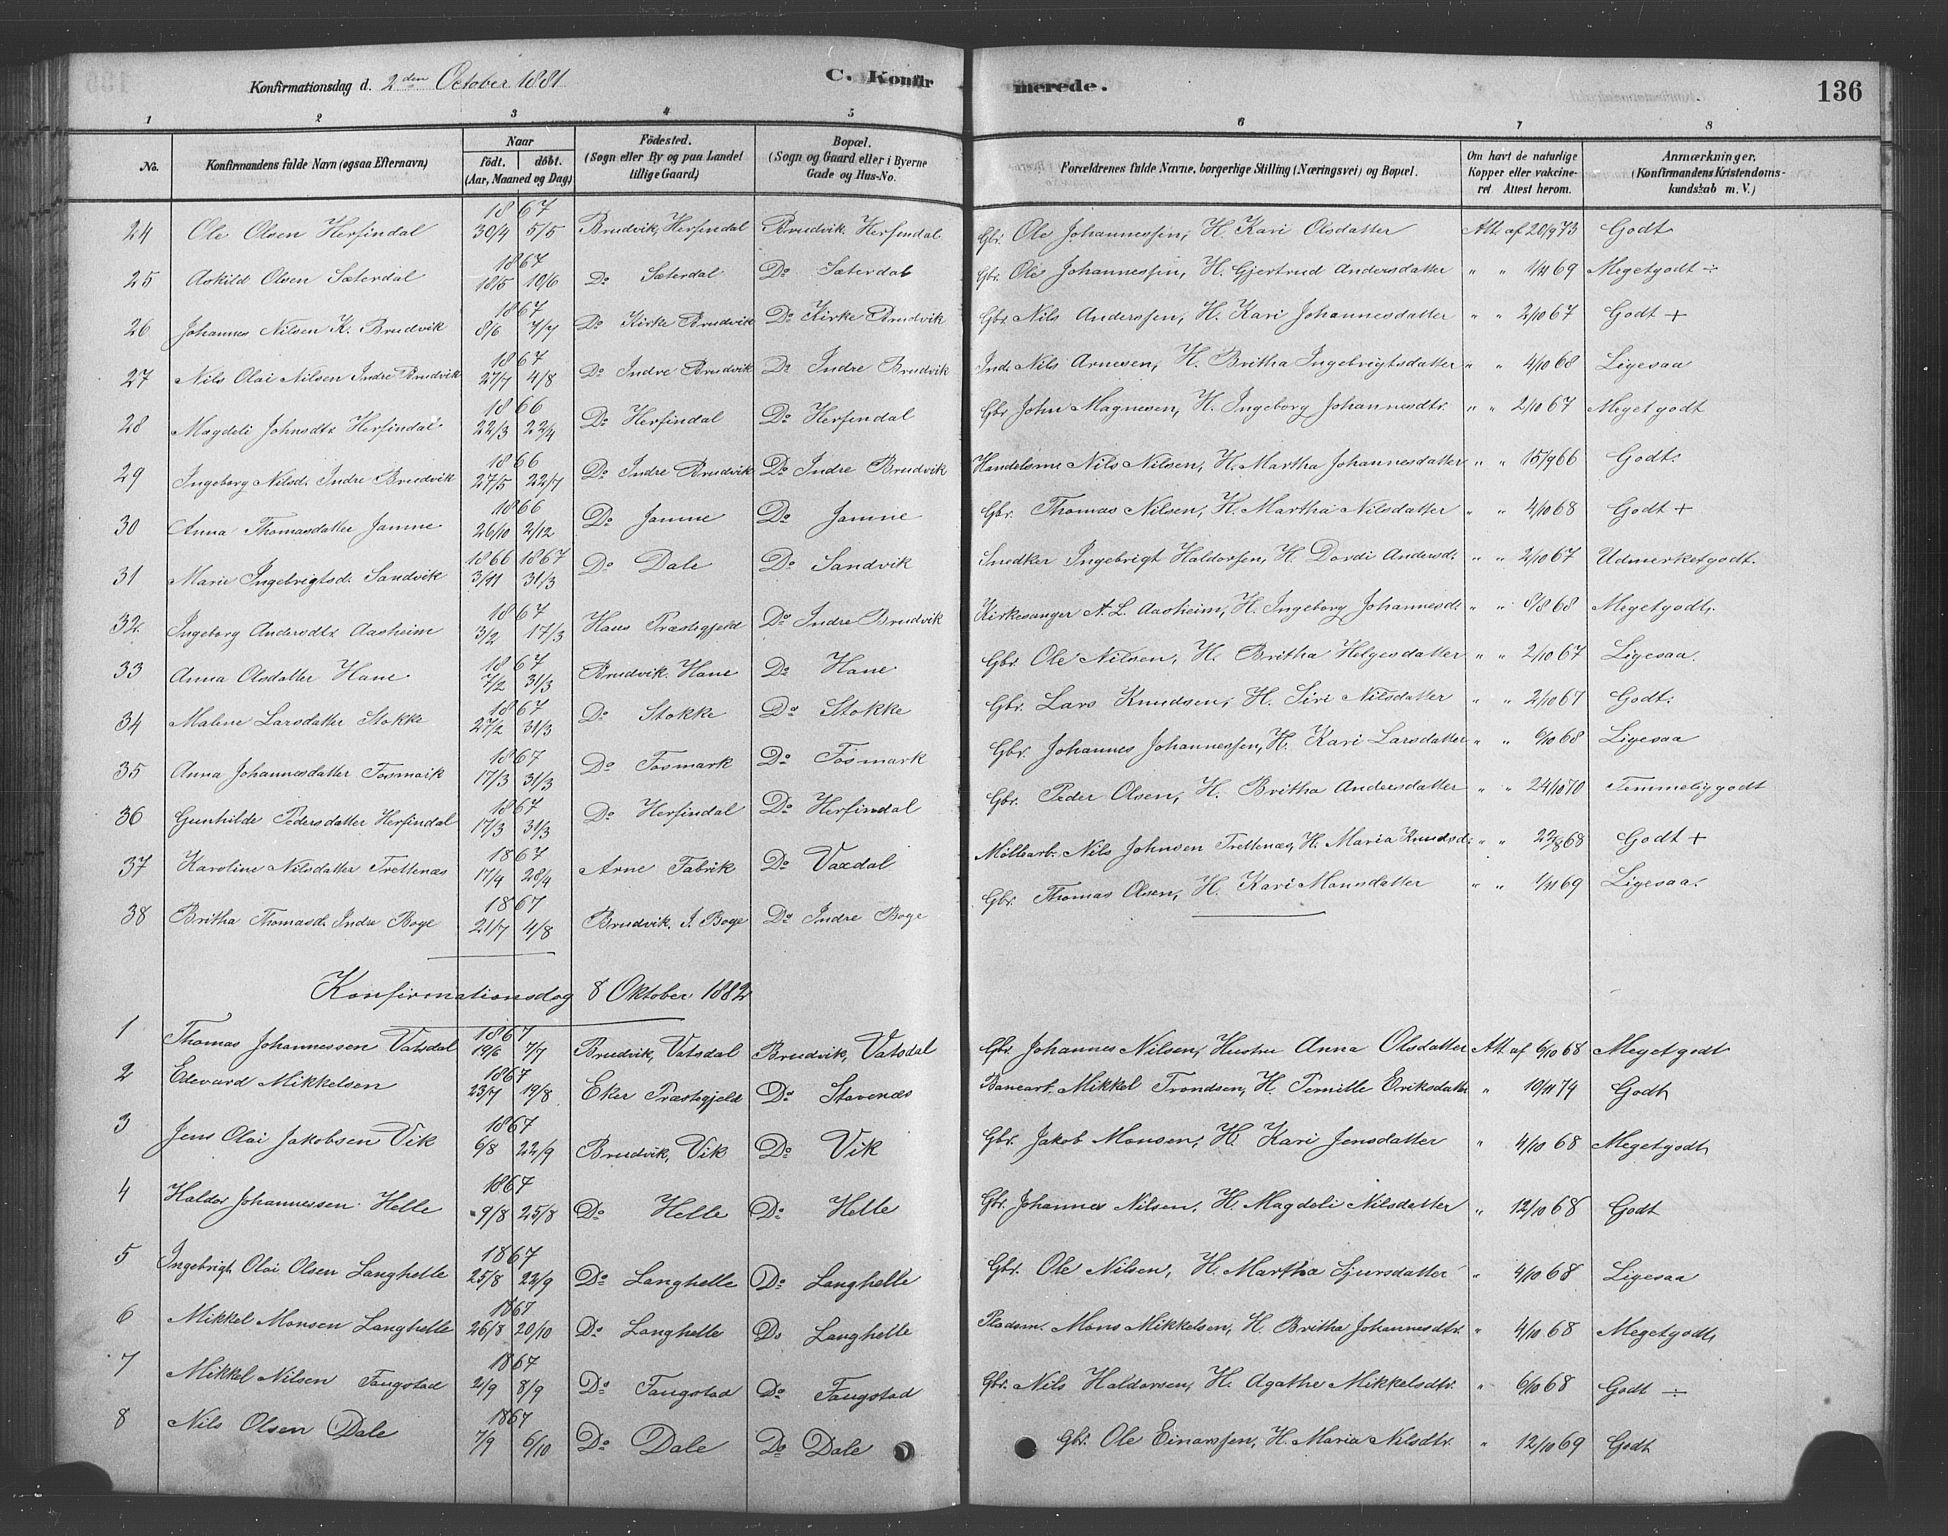 Konfirmationsdag d. 2den October 1881 C. Konfirmerede. 136
1 2 3 4 5 6 7 8
No. Konfirmandens fulde Navn (ogsaa Efternavn) Naar födt. döbt. (Aar, Maaned og Dag) Födested. (Sogn eller By og paa Landet tillige Gaard) Bopæl. (Sogn og Gaard eller i Byerne Gade og Hus-No. Forældrenes fulde Navne, borgerlige Stilling (Næringsvei) og Bopæl. Om havt de naturlige Kopper eller vakcineret Attest herom. Anmærkninger. (Konfirmandens Kristendomskundskab m. V.)
24 Ole Olsen Herfindal 1867 30/4 5/5 Brudvik, Herfindal Brudvik Herfindal Gbr. Ole Johannessen, H. Kari Olsdatter Att. af 20/9 73 Godt
25 Askild Olsen Sæterdal 1867 18/5 10/6 Do Sæterdal Do Sæterdal Gbr. Ole Johannessen, H. Gjertrud Andersdatter " " 1/11 69 Megetgodt ÷
26 Johannes Nilsen K. Brudvik 1867 8/6 7/7 Do Kirke Brudvik Do Kirke Brudvik Gbr. Nils Anderssen, H. Kari Johannesdatter " " 2/10 67 Godt +
27 Nils Olai Nilsen Indre Brudvik 1867 27/7 4/8 Do Indre Brudvik Do Indre Brudvik Ind. Nils Arnesen, H. Britha Ingebrigtsdatter " " 4/10 68 Ligesaa
28 Magdeli Johnsdtr Herfindal 1866 22/3 22/4 Do Herfindal Do Herfindal Gbr John Magnesen, H. Ingeborg Johannesdtr. " " 2/10 67 Megetgodt
29 Ingeborg Nilsd. Indre Brudvik 1866 27/5 22/7 Do Indre Brudvik Do Indre Brudvik Handelsm. Nils Nilsen, H. Martha Johannesdatter " " 15/9 66 Godt.
30 Anna Thomasdatter Jamne 1866 26/10 2/12 Do Jamne Do Jamne Gbr. Thomas Nilsen, H. Martha Nilsdatter " " 4/10 68 Godt +
31 Marie Ingebrigtsd. Sandvik 1866 1867 3/11 31/3 Do Dale Do Sandvik Snedker Ingebrigt Haldorsen, H. Dordi Andersd. " " 2/10 67 Udmerketgodt.
32. Ingeborg Andersdtr Aasheim 1867 3/2 17/3 Haus Præstegjeld Do Indre Brudvik Kirkesanger A. L. Aasheim, H. Ingeborg Johannesd. " " 8/8 68 Megetgodt.
33 Anna Olsdatter Hane 1867 7/2 31/3 Brudvik. Hane Do Hane Gbr. Ole Nilsen, H. Britha Helgesdatter " " 2/10 67 Ligesaa.
34 Malene Larsdatter Stokke 1867 27/2 31/3 Do Stokke Do Stokke Gbr. Lars Knudsen, H. Siri Nilsdatter " " 2/10 67 Godt.
35 Anna Johannesdatter Fosmark 1867 17/3 31/3 Do Fosmark Do Fosmark Gbr. Johannes Johannessen, H. Kari Larsdatter " " 6/10 68 Ligesaa
36 Gunhilde Pedersdatter Herfindal 1867 17/3 31/3 Do Herfindal Do Herfindal Gbr. Peder Olsen, H. Britha Andersdatter " " 24/10 70 Temmeliggodt
37 Karoline Nilsdatter Trettenæs 1867 17/4 28/4 Arne Fabrik Do Vaxdal Möllearb. Nils Johnsen Trettenæs, H. Maria Knudsd. " " 22/8 68 Godt +
38 Britha Thomasd. Indre Boge 1867 21/7 4/8 Brudvik, I. Boge Do Indre Boge Gbr. Thomas Olsen, H. Kari Monsdatter " " 1/11 69 Ligesaa.
Konfirmationsdag 8 Oktober 1882
1 Thomas Johannessen Vatsdal 1867 19/6 7/7 Brudvik, Vatsdal Brudvik, Vatsdal Gbr. Johannes Nilsen, Hustru Anna Olsdatter Att. af 6/10 68 Megetgodt
2 Edevard Mikkelsen 1867 23/7 19/8 Eker Præstegjeld Do Stavenæs Banearb. Mikkel Trondsen, H. Pernille Eriksdatter " 10/11 74 Godt
3 Jens Olai Jakobsen Vik 1867 6/8 22/9 Brudvik, Vik Do Vik Gbr. Jakob Monsen, H. Kari Jensdatter " 4/10 68 Megetgodt
4 Haldor Johannessen Helle 1867 9/8 25/8 Do Helle Do Helle Gbr. Johannes Nilsen, H. Magdeli Nilsdatter " 12/10 68 Godt
5 Ingebrigt Olai Olsen Langhelle 1867 25/8 22/9 Do Langhelle Do Langhelle Gbr. Ole Nilsen, H. Martha Sjursdatter " 4/10 68 Ligesaa
6 Mikkel Monsen Langhelle 1867 26/8 20/10 Do Langhelle Do Langhelle Pladsm. Mons Mikkelsen, H. Britha Johannesdtr. " 4/10 68 Megetgodt
7 Mikkel Nilsen Fangstad 1867 2/9 8/9 Do Fangstad Do Fangstad Gbr. Nils Haldorsen, H. Agathe Mikkelsdtr. " 6/10 68 Godt ÷
8 Nils Olsen Dale 1867 7/9 6/10 Do Dale Do Dale Gbr. Ole Einarssen, H. Maria Nilsdtr. " 12/10 69 Godt